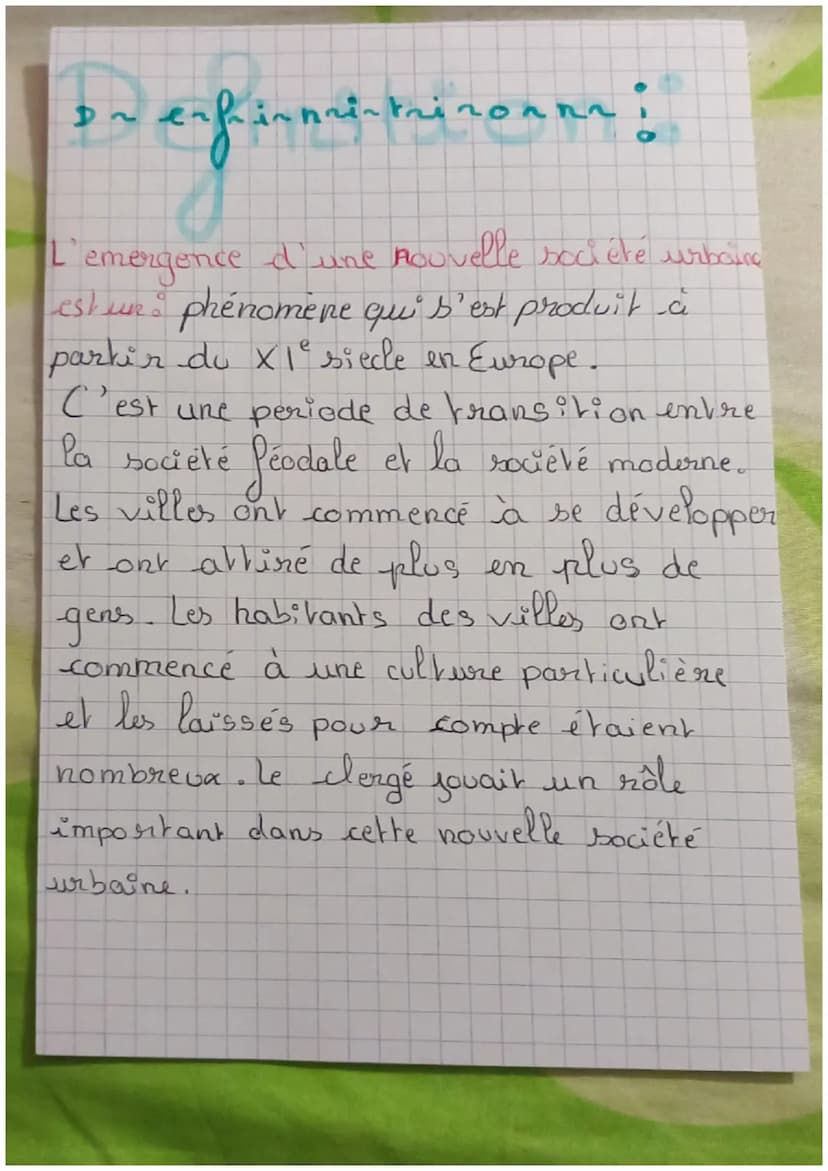 Definition :
L'emergence d'une nouvelle société urbaine
est un : phénomène qui s'est produit à
partir du XIe siecle en Europe.
C'est une période de transition entre
la société féodale et la société moderne.
Les villes ont commencé à se développer
et ont attiré de plus en plus de
gens. Les habitants des villes ont
commencé à une culture particulière
et les laissés pour compte étaient
nombreux. Le clergé jouait un rôle
important dans cette nouvelle société
urbaine.